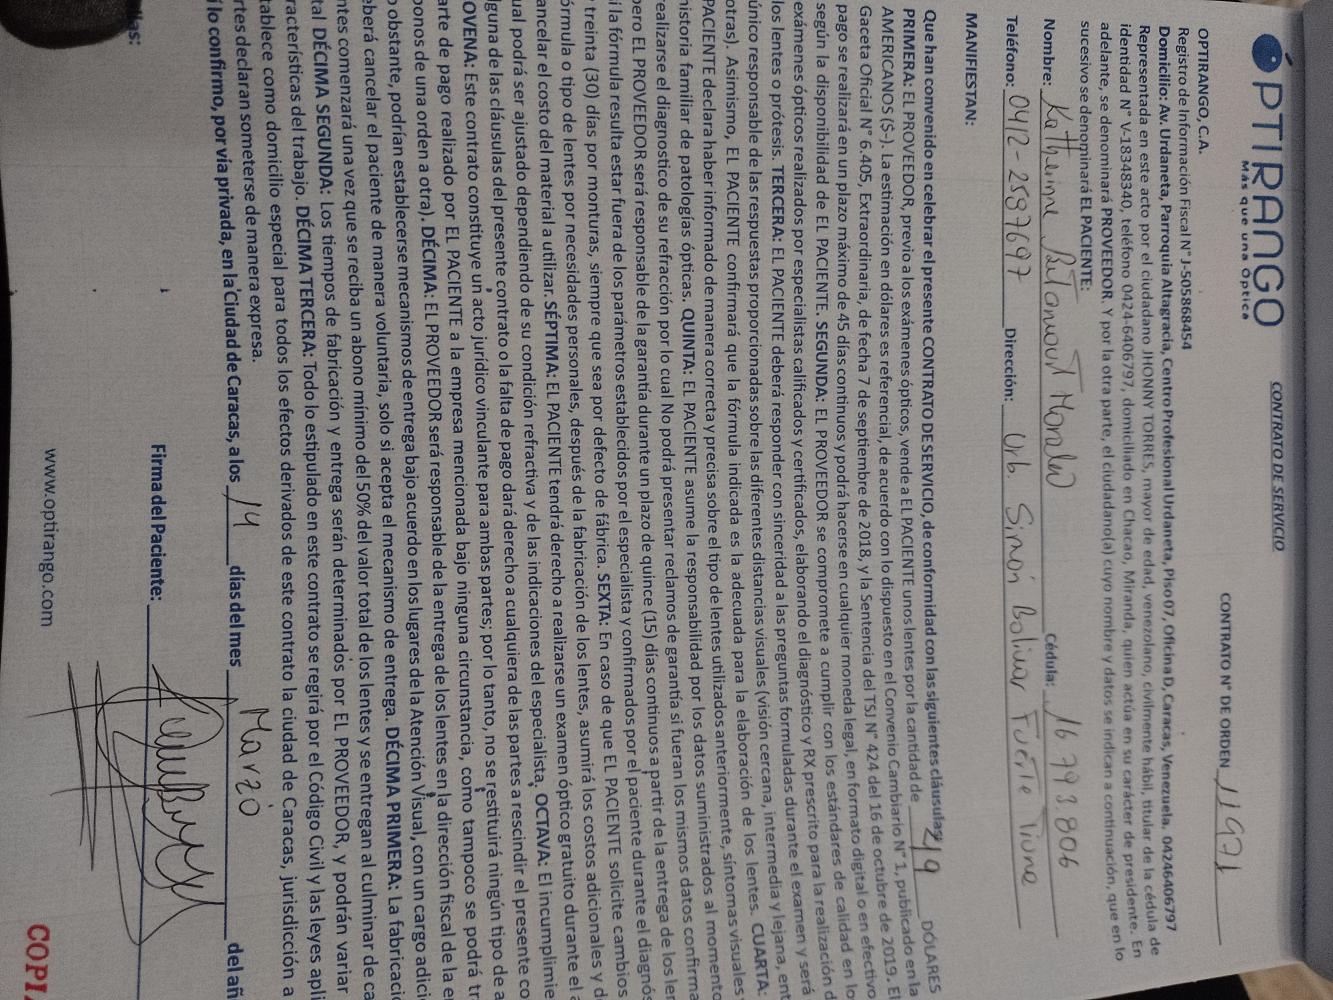 OPTIRANGO
Más que una Óptica
CONTRATO DE SERVICIO
CONTRATO N° DE ORDEN 11971
OPTIRANGO, C.A.
Registro de Información Fiscal N° J-505868454
Domicilio: Av. Urdaneta, Parroquia Altagracia, Centro Profesional Urdaneta, Piso 07, Oficina D, Caracas, Venezuela. 04246406797
Representada en este acto por el ciudadano JHONNY TORRES, mayor de edad, venezolano, civilmente hábil, titular de la cédula de
identidad N° V-18348340, teléfono 0424-6406797, domiciliado en Chacao, Miranda, quien actúa en su carácter de presidente. En
adelante, se denominará PROVEEDOR. Y por la otra parte, el ciudadano(a) cuyo nombre y datos se indican a continuación, que en lo
sucesivo se denominará EL PACIENTE:
Nombre: Katherine Cédula: 16.793.806
Teléfono: 0412-2597697 Dirección: Urb. Simón Bolivar Fuerte Tiuna
MANIFIESTAN:
Que han convenido en celebrar el presente CONTRATO DE SERVICIO, de conformidad con las siguientes cláusulas:
PRIMERA: EL PROVEEDOR, previo a los exámenes ópticos, vende a EL PACIENTE unos lentes por la cantidad de 219 DÓLARES
AMERICANOS ($-). La estimación en dólares es referencial, de acuerdo con lo dispuesto en el Convenio Cambiario N° 1, publicado en la
Gaceta Oficial N° 6.405, Extraordinaria, de fecha 7 de septiembre de 2018, y la Sentencia del TSJ N° 424 del 16 de octubre de 2019. El
pago se realizará en un plazo máximo de 45 días continuos y podrá hacerse en cualquier moneda legal, en formato digital o en efectivo
según la disponibilidad de EL PACIENTE. SEGUNDA: EL PROVEEDOR se compromete a cumplir con los estándares de calidad en lo
exámenes ópticos realizados por especialistas calificados y certificados, elaborando el diagnóstico y RX prescrito para la realización d
los lentes o prótesis. TERCERA: EL PACIENTE deberá responder con sinceridad a las preguntas formuladas durante el examen y será
único responsable de las respuestas proporcionadas sobre las diferentes distancias visuales (visión cercana, intermedia y lejana, ent
otras). Asimismo, EL PACIENTE confirmará que la fórmula indicada es la adecuada para la elaboración de los lentes. CUARTA:
PACIENTE declara haber informado de manera correcta y precisa sobre el tipo de lentes utilizados anteriormente, síntomas visuales
historia familiar de patologías ópticas. QUINTA: EL PACIENTE asume la responsabilidad por los datos suministrados al momento
realizarse el diagnostico de su refracción por lo cual No podrá presentar reclamos de garantía si fueran los mismos datos confirma
pero EL PROVEEDOR será responsable de la garantía durante un plazo de quince (15) días continuos a partir de la entrega de los ler
treinta (30) días por monturas, siempre que sea por defecto de fábrica. SEXTA: En caso de que EL PACIENTE solicite cambios
i la fórmula resulta estar fuera de los parámetros establecidos por el especialista y confirmados por el paciente durante el diagnós
órmula o tipo de lentes por necesidades personales, después de la fabricación de los lentes, asumirá los costos adicionales y d
ancelar el costo del material a utilizar. SÉPTIMA: EL PACIENTE tendrá derecho a realizarse un examen óptico gratuito durante el a
ual podrá ser ajustado dependiendo de su condición refractiva y de las indicaciones del especialista. OCTAVA: El incumplimie
lguna de las cláusulas del presente contrato o la falta de pago dará derecho a cualquiera de las partes a rescindir el presente co
OVENA: Este contrato constituye un acto jurídico vinculante para ambas partes; por lo tanto, no se restituirá ningún tipo de a
arte de pago realizado por EL PACIENTE a la empresa mencionada bajo ninguna circunstancia, como tampoco se podrá tr
bonos de una orden a otra). DÉCIMA: EL PROVEEDOR será responsable de la entrega de los lentes en la dirección fiscal de la e
o obstante, podrían establecerse mecanismos de entrega bajo acuerdo en los lugares de la Atención Visual, con un cargo adici
eberá cancelar el paciente de manera voluntaria, solo si acepta el mecanismo de entrega. DÉCIMA PRIMERA: La fabricació
ntes comenzará una vez que se reciba un abono mínimo del 50% del valor total de los lentes y se entregan al culminar de ca
tal DÉCIMA SEGUNDA: Los tiempos de fabricación y entrega serán determinados por EL PROVEEDOR, y podrán variar
racterísticas del trabajo. DÉCIMA TERCERA: Todo lo estipulado en este contrato se regirá por el Código Civil y las leyes apli
tablece como domicilio especial para todos los efectos derivados de este contrato la ciudad de Caracas, jurisdicción a
rtes declaran someterse de manera expresa.
í lo confirmo, por via privada, en la Ciudad de Caracas, a los 14 días del mes Marzo del añ
Firma del Paciente:
www.optirango.com
COPI